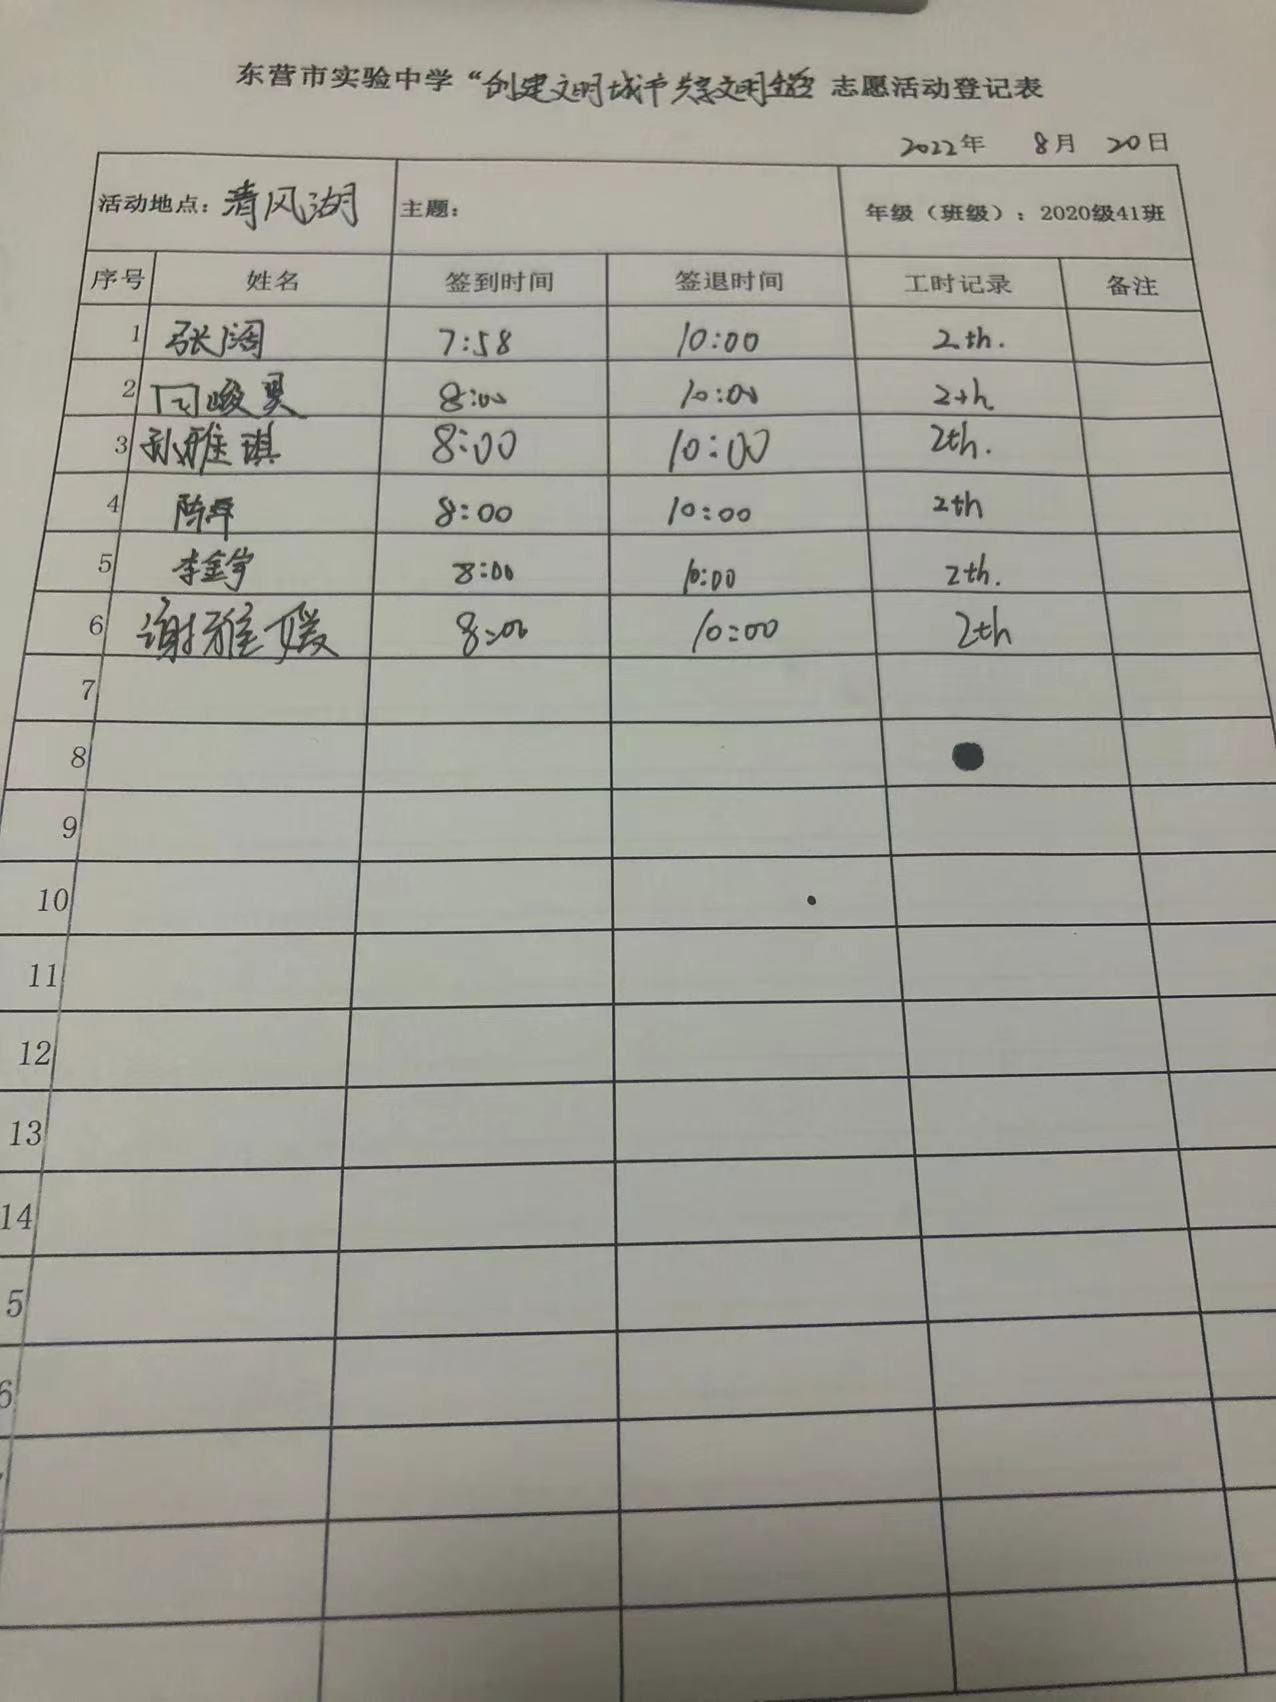 东营市实验中学“创建文明城市共享文明 志愿活动登记表
2022年 8月 20日
活动地点：清风湖 主题： 年级（班级）：2020级41班
序号 姓名 签到时间 签退时间 工时记录 备注
1 张阔 7:58 10:00 2th.
2 8:00 10:00 2th
3 孙雅琪 8:00 10:00 2th.
4 陈 8:00 10:00 2th
5 李金宇 8:00 10:00 2th.
6 谢雅媛 8:00 10:00 2th
7
8
9
10
11
12
13
14
5
6